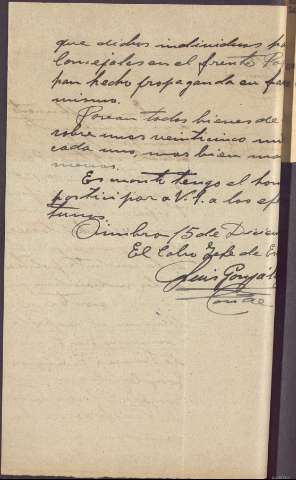 que dichos individuos
Concejales en el frente Po
han hecho propaganda en fa
mismos.
Posean todos bienes de
sobre unas veinticinco mi
cada uno, mas bien mas
menos.
Es cuanto tengo el hon
participar a V.S. a los efe
tunos.
Oimbra 15 de Diciem
El Cabo Jefe de
Luis Gonzál